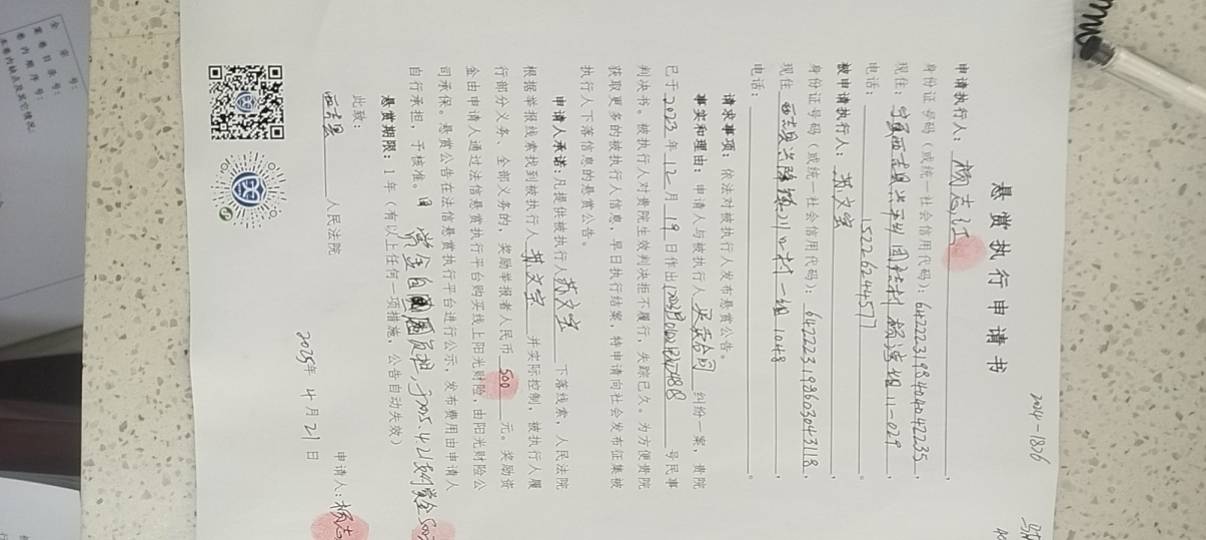 2024-1826
悬赏执行申请书
申请执行人：杨志江，
身份证号码（或统一社会信用代码）：642223198404042235，
现住：宁夏西吉县兴平乡团结村杨堡组11-029，
电话：15226244577。
被申请执行人：苏文宝，
身份证号码（或统一社会信用代码）：642223198603043118，
现住 西吉县兴隆镇川口村一组104号，
电话：。
请求事项：依法对被执行人发布悬赏公告。
事实和理由：申请人与被执行人买卖合同纠纷一案，贵院
已于2023年12月19日作出号民事
判决书。被执行人对贵院生效判决拒不履行，失踪已久。为方便贵院
获取更多的被执行人信息，早日执行结案，特申请向社会发布征集被
执行人下落信息的悬赏公告。
申请人承诺：凡提供被执行人苏文宝下落线索，人民法院
根据举报线索找到被执行人苏文宝并实际控制，被执行人履
行部分义务、全部义务的，奖励举报者人民币500元。奖励资
金由申请人通过法信悬赏执行平台购买线上阳光财险，由阳光财险公
司承保。悬赏公告在法信悬赏执行平台进行公示，发布费用由申请人
自行承担，予核准。
悬赏期限：1年（有以上任何一项措施，公告自动失效）
此致：
西吉县人民法院
申请人：杨志
2025年4月21日
全宗号：
案卷目录号：
卷内顺序号：